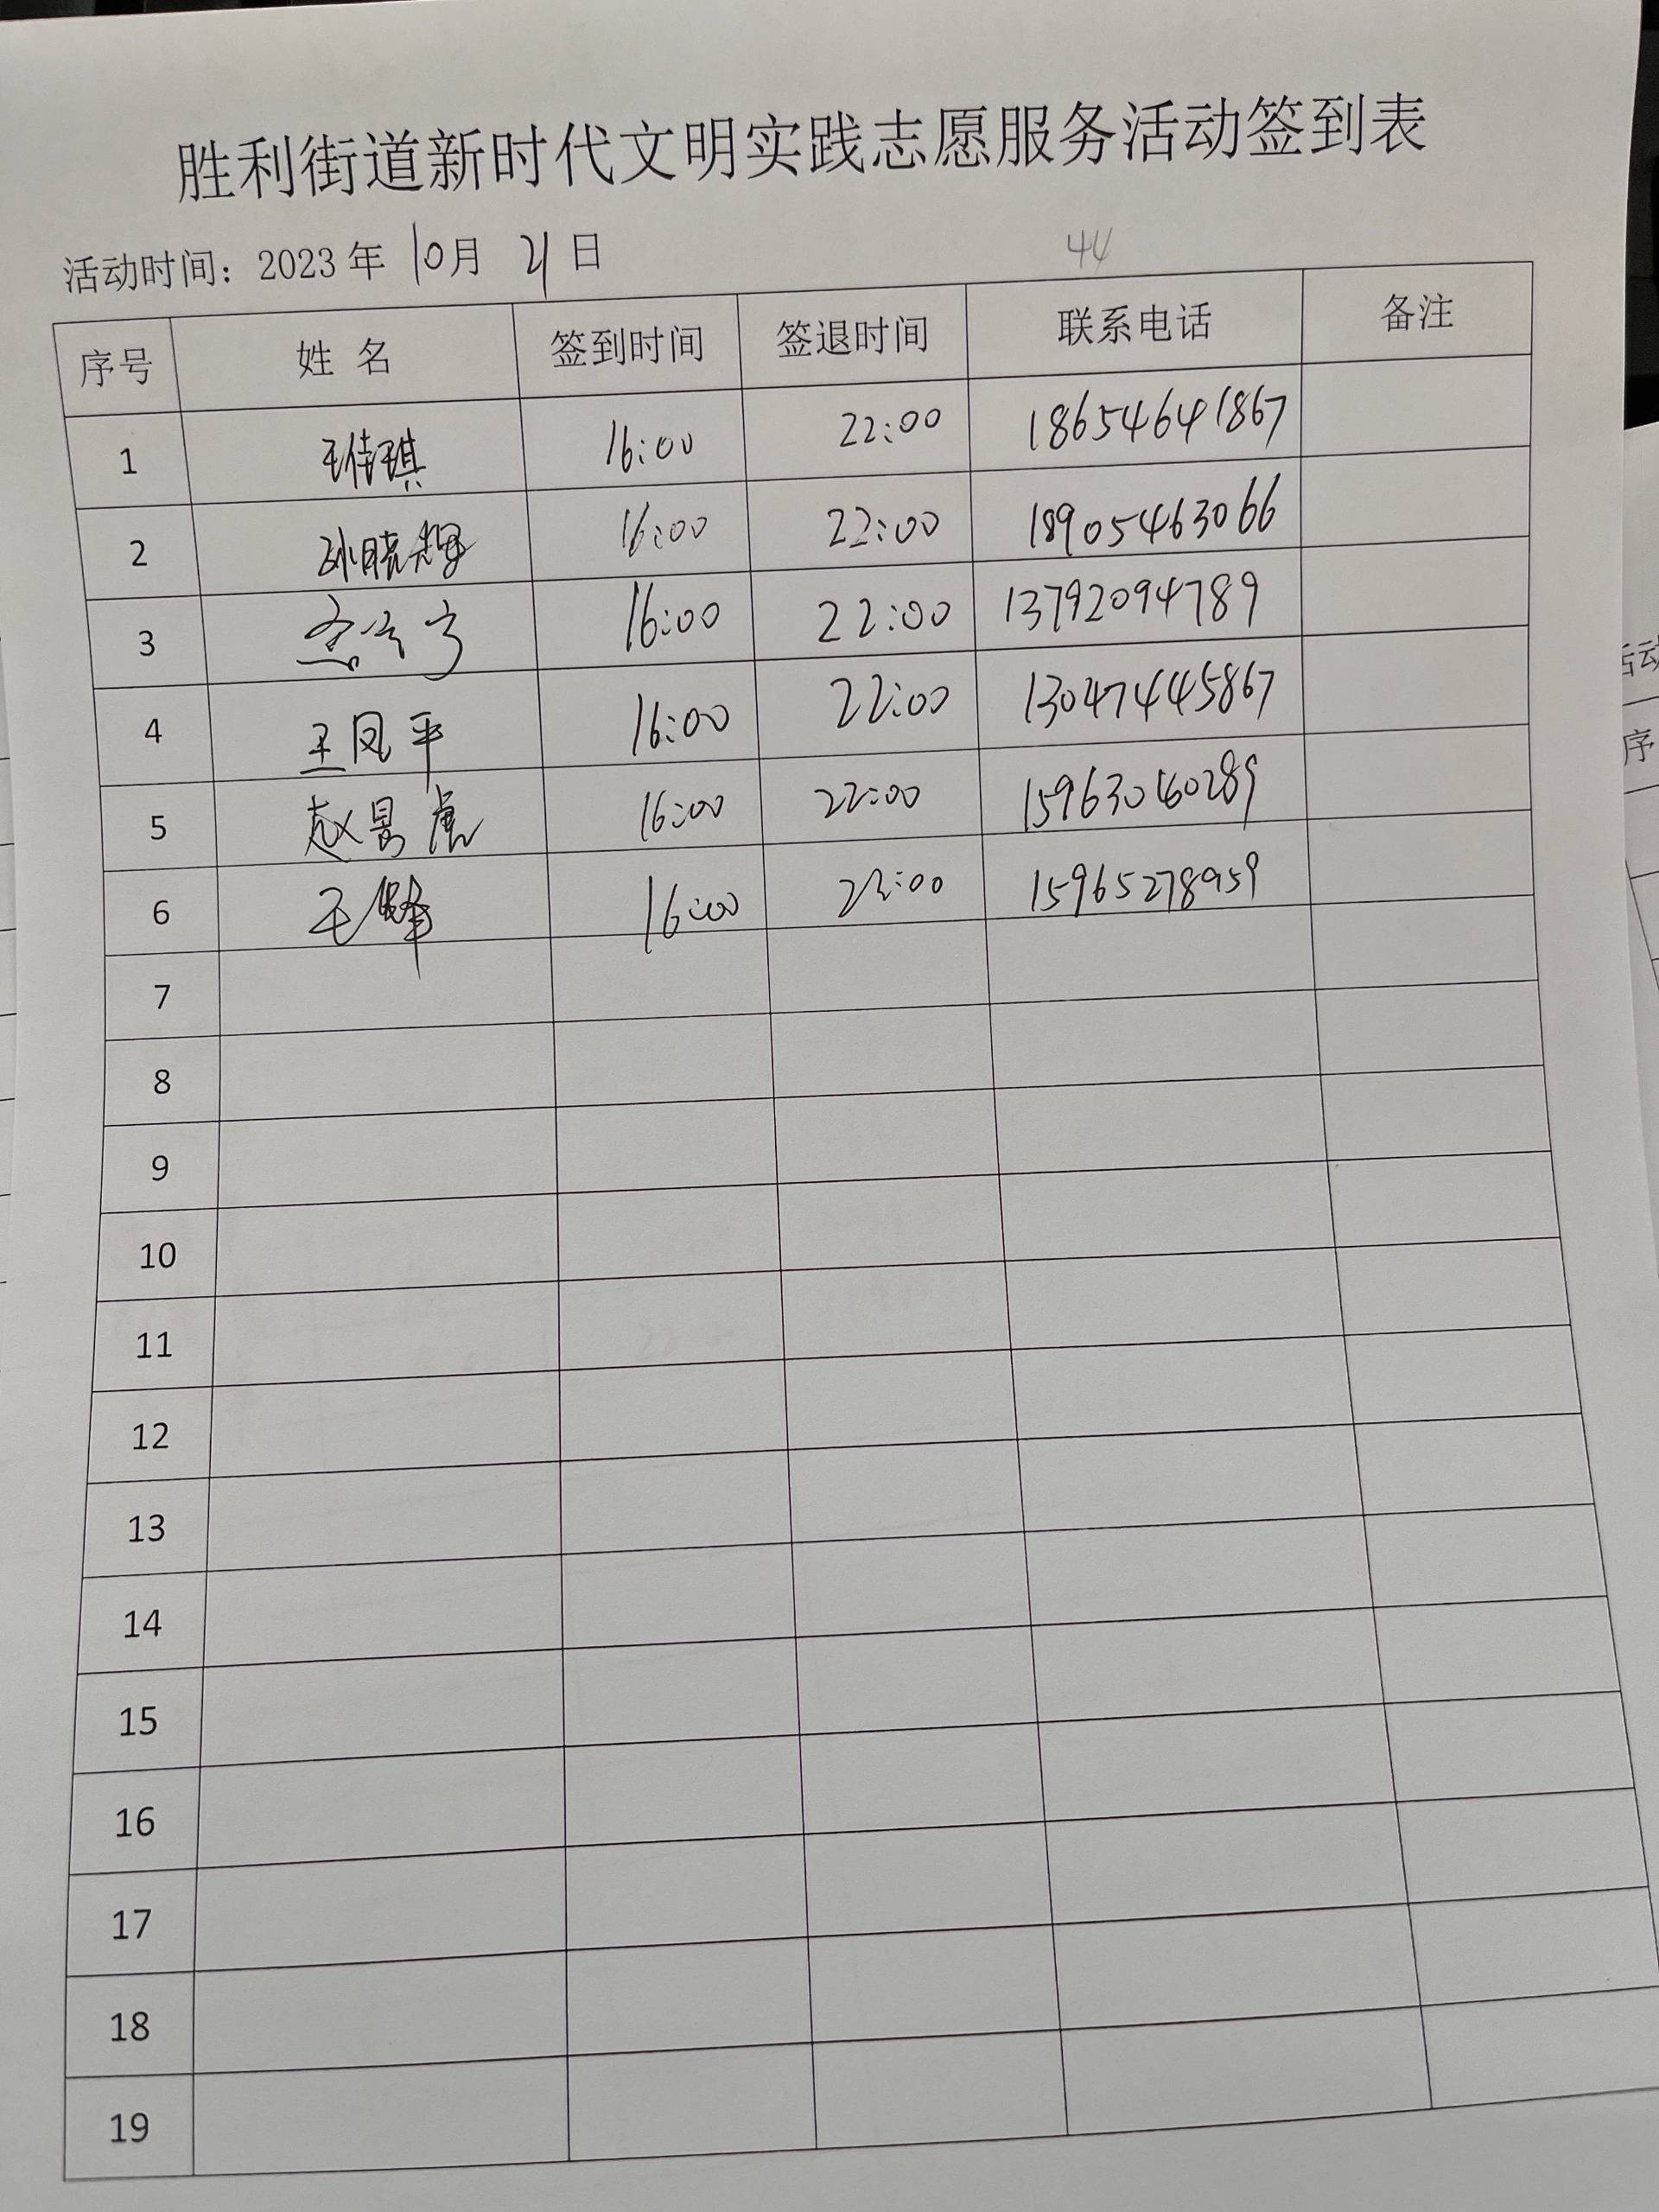 胜利街道新时代文明实践志愿服务活动签到表
活动时间：2023 年 10月 21 日
44
序号 姓 名 签到时间 签退时间 联系电话 备注
1 王倩琪 16:00 22:00 18654641867
2 孙晓辉 16:00 22:00 18905463066
3 16:00 22:00 13792094789
4 王凤平 16:00 22:00 13047445867
5 赵昌虎 16:00 22:00 15963040289
6 王峰 16:00 22:00 15965278959
7
8
9
10
11
12
13
14
15
16
17
18
19
活动
序